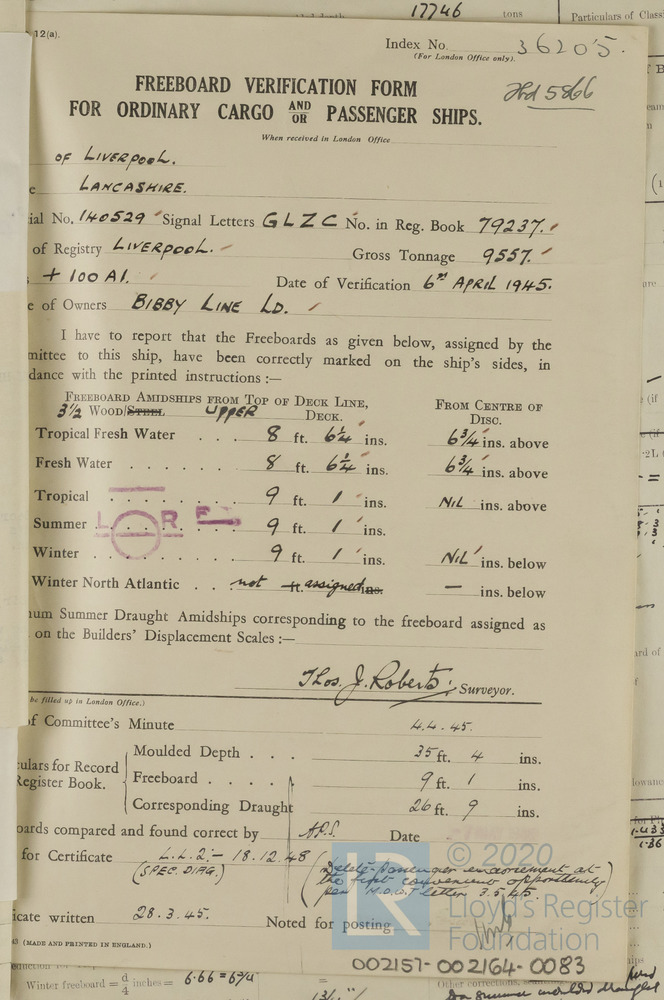 17746 tons Particulars of Class
12(a).
Index No. 36205.
(For London Office only).
FREEBOARD VERIFICATION FORM
FOR ORDINARY CARGO AND/OR PASSENGER SHIPS.
5866
When received in London Office
of LIVERPOOL.
e LANCASHIRE.
ial No. 140529 Signal Letters GLZC No. in Reg. Book 79237.
of Registry LIVERPOOL. Gross Tonnage 9557.
s + 100 A1. Date of Verification 6th APRIL 1945.
e of Owners BIBBY LINE LD.
I have to report that the Freeboards as given below, assigned by the
mittee to this ship, have been correctly marked on the ship's sides, in
dance with the printed instructions :—
FREEBOARD AMIDSHIPS FROM TOP OF DECK LINE, FROM CENTRE OF
3½ WOOD/STEEL UPPER DECK. DISC.
Tropical Fresh Water . . . 8 ft. 6¼ ins. 6¾ ins. above
Fresh Water . . . . . . 8 ft. 6¼ ins. 6¾ ins. above
Tropical . . . . . . . 9 ft. 1 ins. NIL ins. above
Summer . . . . . . . 9 ft. 1 ins.
L R F
Winter . . . . . . . . 9 ft. 1 ins. NIL ins. below
Winter North Atlantic . . not ft. assigned ins. — ins. below
num Summer Draught Amidships corresponding to the freeboard assigned as
on the Builders' Displacement Scales :—
Thos. J. Roberts. Surveyor.
be filled up in London Office.)
of Committee's Minute 4.4.45.
Moulded Depth . . . 35 ft. 4 ins.
culars for Record
Register Book.
Freeboard . . . . 9 ft. 1 ins.
Corresponding Draught 26 ft. 9 ins.
oards compared and found correct by Date
for Certificate L.L.2.- 18.12.48
(SPEC. DIAG.)
(Delete passenger endorsement at
the first convenient opportunity)
per M.O.W.T letter 3.5.45.
icate written 28.3.45. Noted for posting
(MADE AND PRINTED IN ENGLAND.)
LR
© 2020
Lloyd's Register
Foundation
002157-002164-0083
Winter freeboard = d/4 inches = 6.66 = 6¾
Other corrections,